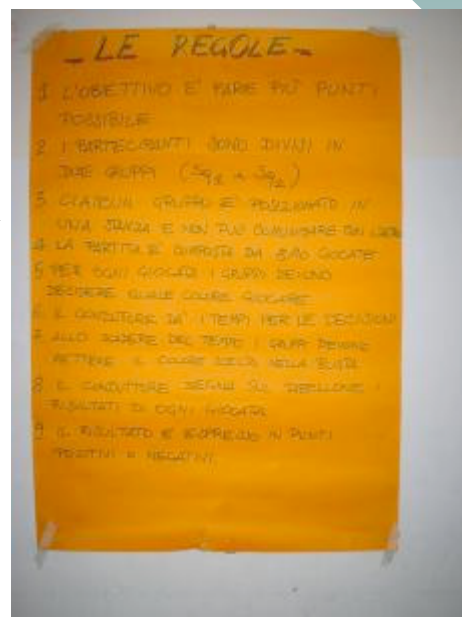 - LE REGOLE -
1 L'OBIETTIVO E' FARE PIU' PUNTI
POSSIBILE
2 I PARTECIPANTI SONO DIVISI IN
DUE GRUPPI (Sq1 e Sq2)
3 CIASCUN GRUPPO E' POSIZIONATO IN
UNA STANZA E NON PUO' COMUNICARE CON
4 LA PARTITA E' COMPOSTA DA 8/10 GIOCATE
5 PER OGNI GIOCATA I GRUPPI DEVONO
DECIDERE QUALE COLORE GIOCARE
6 IL CONDUTTORE DA' I TEMPI PER LE DECISIONI
7 ALLO SCADERE DEL TEMPO I GRUPPI DEVONO
METTERE IL COLORE SCELTO NELLA BUSTA
8 IL CONDUTTORE SEGNA SUL TABELLONE I
RISULTATI DI OGNI GIOCATA
9 IL RISULTATO E' ESPRESSO IN PUNTI
POSITIVI e NEGATIVI.